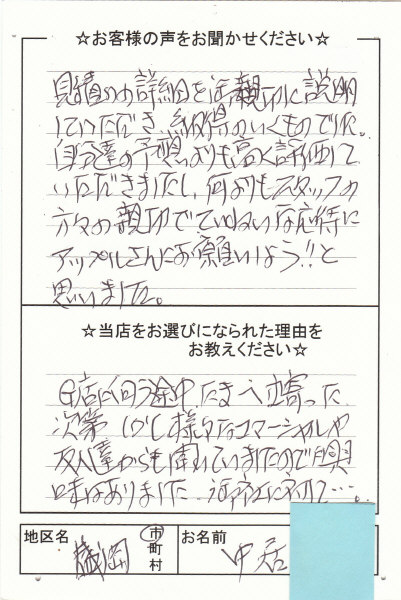 ☆お客様の声をお聞かせください☆
見積りの詳細を
親切に説明
していただき、納得のいくものでした。
自分達の予想よりも高く評価して
いただきましたし、何よりもスタッフの
方々の親切でていねいな応待に
アップルさんにお願いしよう!!と
思いました。
☆当店をお選びになられた理由を
お教えください☆
G店に向う途中、たまたま寄った
次第。しかし様々なコマーシャルや
友人達からも聞いていましたので興
味はありました。
地区名
盛岡
市
町
村
お名前
中居